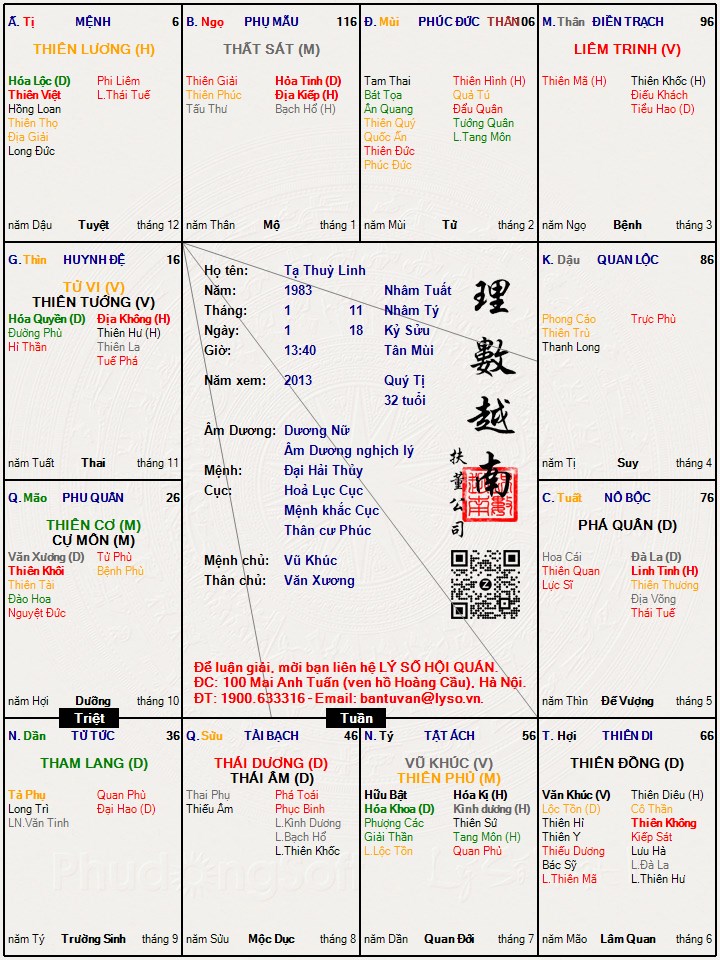 Ấ. Tị MỆNH 6
THIÊN LƯƠNG (H)
Hóa Lộc (D) Phi Liêm
Thiên Việt L.Thái Tuế
Hồng Loan
Thiên Thọ
Địa Giải
Long Đức
năm Dậu Tuyệt tháng 12
B. Ngọ PHỤ MẪU 116
THẤT SÁT (M)
Thiên Giải Hỏa Tinh (D)
Thiên Phúc Địa Kiếp (H)
Tấu Thư Bạch Hổ (H)
năm Thân Mộ tháng 1
Đ. Mùi PHÚC ĐỨC THÂN 106
Tam Thai Thiên Hình (H)
Bát Tọa Quả Tú
Ân Quang Đẩu Quân
Thiên Quý Tướng Quân
Quốc Ấn L.Tang Môn
Thiên Đức
Phúc Đức
năm Mùi Tử tháng 2
M. Thân ĐIỀN TRẠCH 96
LIÊM TRINH (V)
Thiên Mã (H) Thiên Khốc (H)
Điếu Khách
Tiểu Hao (D)
năm Ngọ Bệnh tháng 3
G. Thìn HUYNH ĐỆ 16
TỬ VI (V)
THIÊN TƯỚNG (V)
Hóa Quyền (D) Địa Không (H)
Đường Phù Thiên Hư (H)
Hỉ Thần Thiên La
Tuế Phá
năm Tuất Thai tháng 11
Họ tên: Tạ Thuỳ Linh
Năm: 1983 Nhâm Tuất
Tháng: 1 11 Nhâm Tý
Ngày: 1 18 Kỷ Sửu
Giờ: 13:40 Tân Mùi
Năm xem: 2013 Quý Tị
32 tuổi
Âm Dương: Dương Nữ
Âm Dương nghịch lý
Mệnh: Đại Hải Thủy
Cục: Hoả Lục Cục
Mệnh khắc Cục
Thân cư Phúc
Mệnh chủ: Vũ Khúc
Thân chủ: Văn Xương
理數越南
扶董公司
Z
Để luận giải, mời bạn liên hệ LÝ SỐ HỘI QUÁN.
ĐC: 100 Mai Anh Tuấn (ven hồ Hoàng Cầu), Hà Nội.
ĐT: 1900.633316 - Email: bantuvan@lyso.vn.
K. Dậu QUAN LỘC 86
Phong Cáo Trực Phù
Thiên Trù
Thanh Long
năm Tị Suy tháng 4
Q. Mão PHU QUÂN 26
THIÊN CƠ (M)
CỰ MÔN (M)
Văn Xương (D) Tử Phù
Thiên Khôi Bệnh Phù
Thiên Tài
Đào Hoa
Nguyệt Đức
năm Hợi Dưỡng tháng 10
C. Tuất NÔ BỘC 76
PHÁ QUÂN (D)
Hoa Cái Đà La (D)
Thiên Quan Linh Tinh (H)
Lực Sĩ Thiên Thương
Địa Võng
Thái Tuế
năm Thìn Đế Vượng tháng 5
Triệt
Tuần
N. Dần TỬ TỨC 36
THAM LANG (D)
Tả Phụ Quan Phù
Long Trì Đại Hao (D)
LN.Văn Tinh
năm Tý Trường Sinh tháng 9
Q. Sửu TÀI BẠCH 46
THÁI DƯƠNG (D)
THÁI ÂM (D)
Thai Phụ Phá Toái
Thiếu Âm Phục Binh
L.Kình Dương
L.Bạch Hổ
L.Thiên Khốc
năm Sửu Mộc Dục tháng 8
N. Tý TẬT ÁCH 56
VŨ KHÚC (V)
THIÊN PHỦ (M)
Hữu Bật Hóa Kị (H)
Hóa Khoa (D) Kình dương (H)
Phượng Các Thiên Sứ
Giải Thần Tang Môn (H)
L.Lộc Tồn Quan Phủ
năm Dần Quan Đới tháng 7
T. Hợi THIÊN DI 66
THIÊN ĐỒNG (D)
Văn Khúc (V) Thiên Diêu (H)
Lộc Tồn (D) Cô Thần
Thiên Hỉ Thiên Không
Thiên Y Kiếp Sát
Thiếu Dương Lưu Hà
Bác Sỹ L.Đà La
L.Thiên Mã L.Thiên Hư
năm Mão Lâm Quan tháng 6